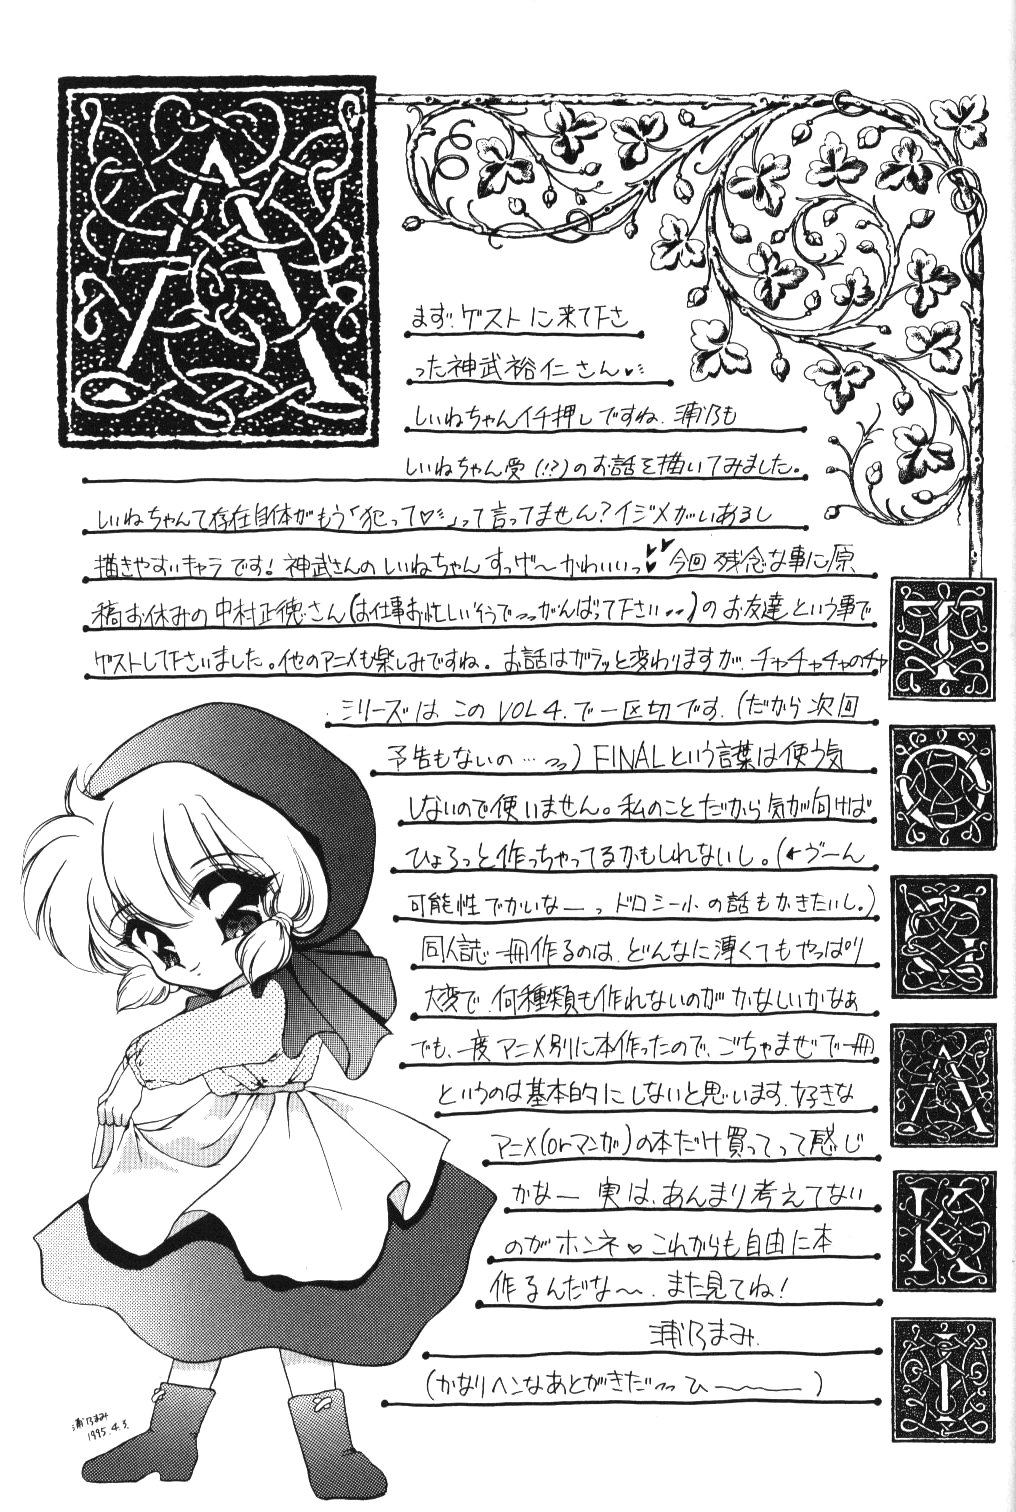 A
まず、ゲストに来て下さ
った神武裕仁さん♥
しいねちゃんイチ押しですね、浦乃も
しいねちゃん受(!?)のお話を描いてみました。
しいねちゃんて存在自体がもう「犯って♡」って言ってません?イジメがいあるし
描きやすいキャラです! 神武さんのしいねちゃん すっげ〜かわいいっ♥ 今回 残念な事に原
稿お休みの中村正徳さん(お仕事お忙しいそうで〜がんばって下さい〜)のお友達という事で
ゲストして下さいました。他のアニメも楽しみですね。お話はガラッと変わりますが、チャチャチャのチャ
シリーズはこのVOL4.で一区切です。(だから次回
予告もないの…〜)FINALという言葉は使う気
しないので使いません。私のことだから気が向けば
ひょろっと作っちゃってるかもしれないし。(←う゛ーん
可能性でかいなーっ ドロシー小の話もかきたいし。)
同人誌一冊作るのは、どんなに薄くてもやっぱり
大変で、何種類も作れないのが かなしいかなぁ
でも、一度アニメ別に本作ったので、ごちゃまぜで一冊
というのは基本的にしないと思います。好きな
アニメ(orマンガ)の本だけ買ってって感じ
かなー 実は、あんまり考えてない
のがホンネ♡ これからも自由に本
作るんだな〜。また見てね!
浦乃まみ.
(かなりヘンなあとがきだ〜ひ〜)
T
O
G
A
K
I
浦乃まみ
1995.4.3.